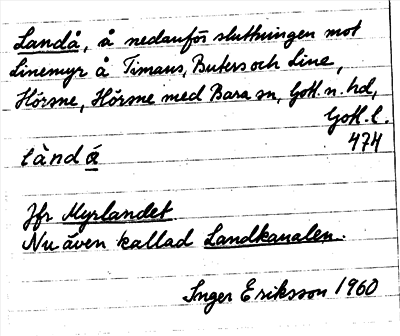 Landå, å nedanför sluttningen mot
Linemyr å Timans, Buters och Line,
Hörsne, Hörsne med Bara sn, Gotl. n. hd,
Gotl. l.
474
làndå
Jfr Myrlandet
Nu även kallad Landkanalen.
Inger Eriksson 1960